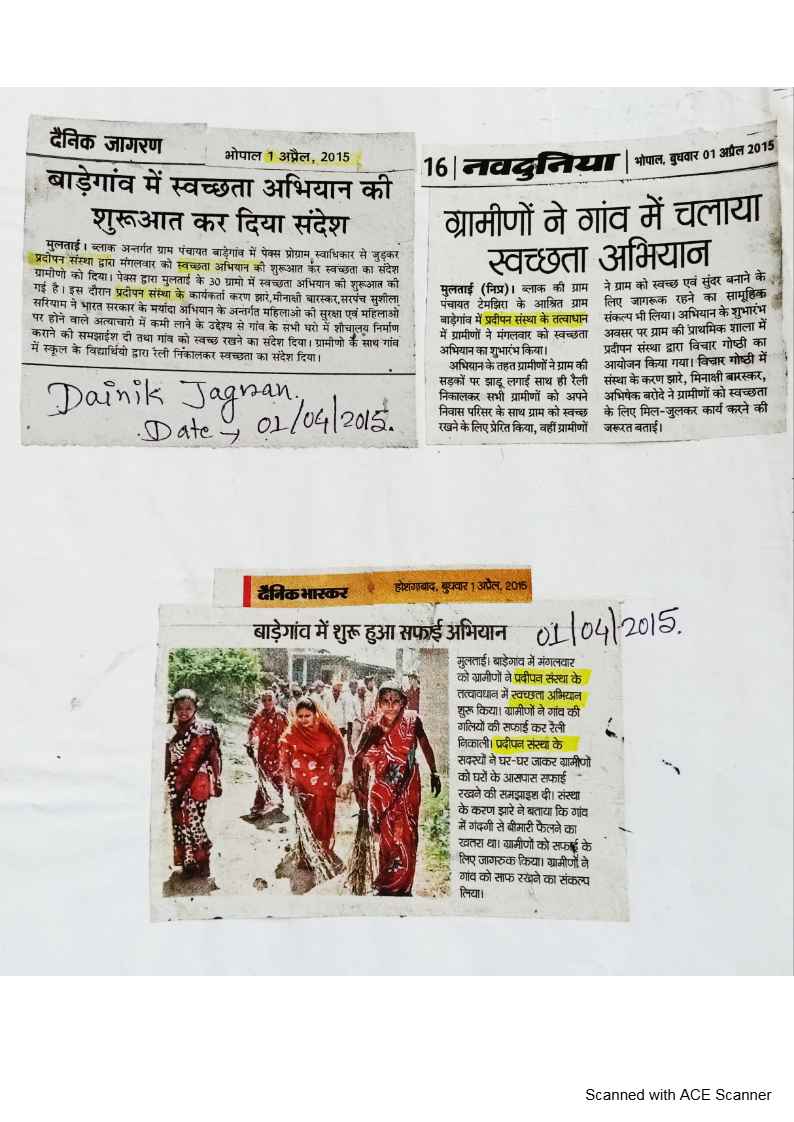 दैनिक जागरण
भोपाल 1 अप्रैल, 2015
बाड़ेगांव में स्वच्छता अभियान की
शुरूआत कर दिया संदेश
मुलताई। ब्लाक अन्तर्गत ग्राम पंचायत बाड़ेगांव में पेक्स प्रोग्राम, स्वाधिकार से जुड़कर
प्रदीपन संस्था द्वारा मंगलवार को स्वच्छता अभियान की शुरूआत कर स्वच्छता का संदेश
ग्रामीणो को दिया। पेक्स द्वारा मुलताई के 30 ग्रामो में स्वच्छता अभियान की शुरूआत की
गई है। इस दौरान प्रदीपन संस्था के कार्यकर्ता करण झारे,मीनाक्षी बारस्कर,सरपंच सुशीला
सरियाम ने भारत सरकार के मर्यादा अभियान के अन्तर्गत महिलाओ की सुरक्षा एवं महिलाओ
पर होने वाले अत्याचारो में कमी लाने के उद्देश्य से गांव के सभी घरो में शौचालय निर्माण
कराने की समझाईश दी तथा गांव को स्वच्छ रखने का संदेश दिया। ग्रामीणो के साथ गांव
में स्कूल के विद्यार्थियो द्वारा रेली निकालकर स्वच्छता का संदेश दिया।
Dainik Jagran.
Date → 01/04/2015.
16 | नवदुनिया | भोपाल, बुधवार 01 अप्रैल 2015
ग्रामीणों ने गांव में चलाया
स्वच्छता अभियान
मुलताई (निप्र)। ब्लाक की ग्राम
पंचायत टेमझिरा के आश्रित ग्राम
बाड़ेगांव में प्रदीपन संस्था के तत्वाधान
में ग्रामीणों ने मंगलवार को स्वच्छता
अभियान का शुभारंभ किया।
अभियान के तहत ग्रामीणों ने ग्राम की
सड़कों पर झाडू लगाई साथ ही रैली
निकालकर सभी ग्रामीणों को अपने
निवास परिसर के साथ ग्राम को स्वच्छ
रखने के लिए प्रेरित किया, वहीं ग्रामीणों
ने ग्राम को स्वच्छ एवं सुंदर बनाने के
लिए जागरूक रहने का सामूहिक
संकल्प भी लिया। अभियान के शुभारंभ
अवसर पर ग्राम की प्राथमिक शाला में
प्रदीपन संस्था द्वारा विचार गोष्ठी का
आयोजन किया गया। विचार गोष्ठी में
संस्था के करण झारे, मिनाक्षी बारस्कर,
अभिषेक बरोदे ने ग्रामीणों को स्वच्छता
के लिए मिल-जुलकर कार्य करने की
जरूरत बताई।
दैनिक भास्कर
होशंगाबाद, बुधवार 1 अप्रैल, 2015
बाड़ेगांव में शुरू हुआ सफाई अभियान
01/04/2015.
मुलताई। बाड़ेगांव में मंगलवार
को ग्रामीणों ने प्रदीपन संस्था के
तत्वावधान में स्वच्छता अभियान
शुरू किया। ग्रामीणों ने गांव की
गलियों की सफाई कर रैली
निकाली। प्रदीपन संस्था के
सदस्यों ने घर-घर जाकर ग्रामीणों
को घरों के आसपास सफाई
रखने की समझाइश दी। संस्था
के करण झारे ने बताया कि गांव
में गंदगी से बीमारी फैलने का
खतरा था। ग्रामीणों को सफाई के
लिए जागरुक किया। ग्रामीणों ने
गांव को साफ रखने का संकल्प
लिया।
Scanned with ACE Scanner